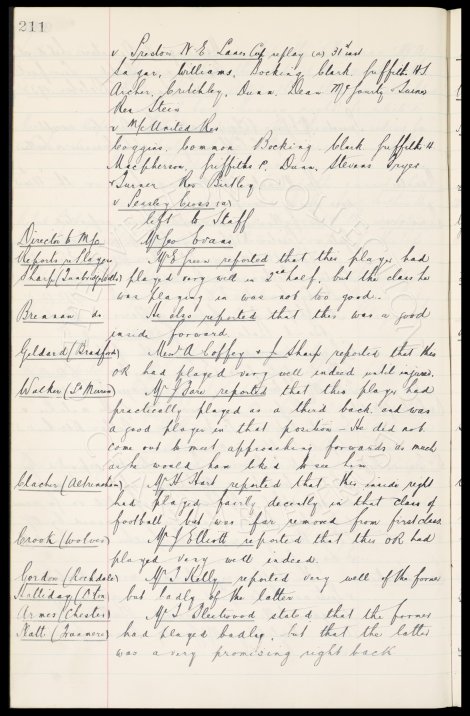 211
v Preston N. E. Lancs Cup replay (a) 31st inst
Sagar, Williams, Bocking Clark Griffith H S
Archer, Critchley, Dunn, Dean McGourty Turner
Res Stein
v M/c United Res
Coggins, Common Bocking Clark Griffith H
Macpherson, Griffiths P. Dunn, Stevens Fryer
Turner Res Birtley
v Leasley Cross (a)
left to Staff
Director to M/c Mr Geo Evans
Reports re Players Mr E Green reported that this player had
Sharp (Tunbridge Wells) played very well in 2nd half, but the class he
was playing in was not too good.
Brennan do He also reported that this was a good
inside forward
Geldard (Bradford) Messrs A Coffey & J Sharp reported that this
OR had played very well indeed until injured.
Walker (St Mirren) Mr J reported that this player had
practically played as a third back and was
a good player in that position - He did not
come out to meet approaching forwards as much
as he would have liked to see him
Clacher (Altrincham) Mr H Hart reported that this inside right
had played fairly decently in that class of
football but was far removed from first class.
Crook (Wolves) Mr J Elliott reported that this OR had
played very well indeed
Cordon (Rochdale) Mr T Kelly reported very well of the former
Halliday ( but badly of the latter
Armes (Chester) Mr T Fleetwood stated that the former
Platt (Tranmere) had played badly, but that the latter
was a very promising right back